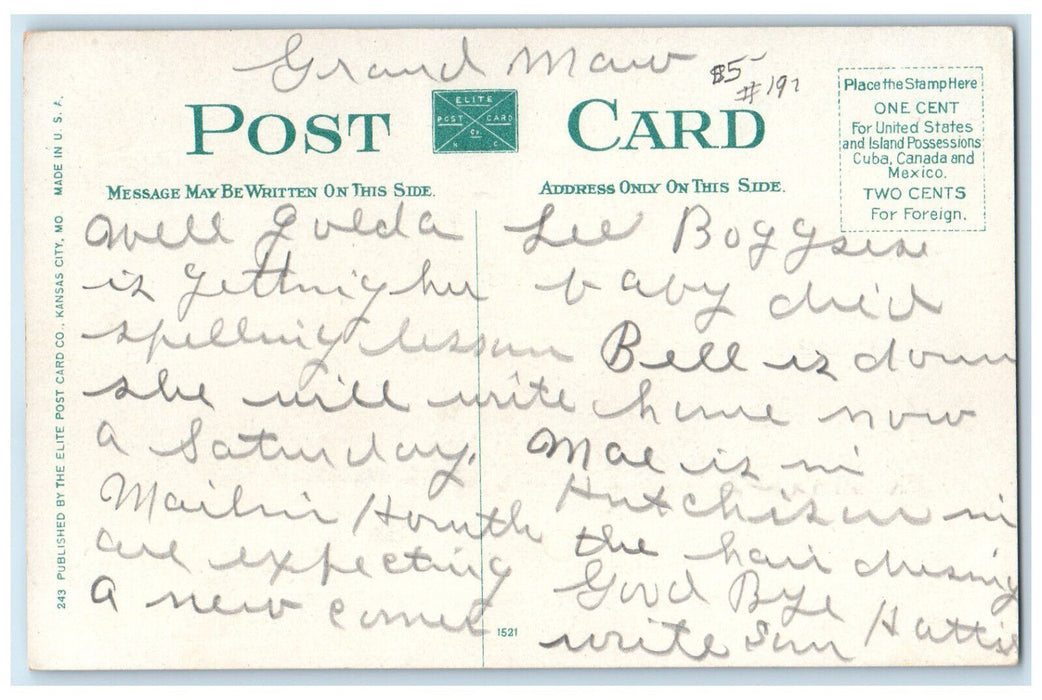 Grand Maw
$5-
#197
POST CARD
ELITE
POST CARD
Co
K C
MESSAGE MAY BE WRITTEN ON THIS SIDE.
ADDRESS ONLY ON THIS SIDE.
Place the Stamp Here
ONE CENT
For United States
and Island Possessions
Cuba, Canada and
Mexico.
TWO CENTS
For Foreign.
243 PUBLISHED BY THE ELITE POST CARD CO., KANSAS CITY, MO MADE IN U. S. A.
Well Golda
is getting her
spelling lesson
she will write
a Saturday.
are expecting
a new comer
1521
Lee
baby died
Bell is down
home now
Mae is in
Hutchison in
the hair dressing
Good Bye
write Sun Hattie